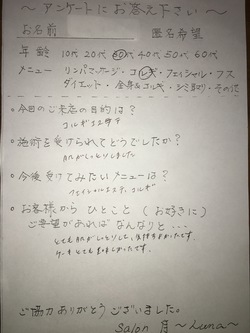 ～アンケートにお答え下さい～
お名前 匿名希望
年齢 10代 20代 30代 40代 50代 60代
メニュー リンパマッサージ・コルギ・フェイシャル・フス
ダイエット・全身&コルギ・シミ取り・その他
○今日のご来店の目的は?
コルギエステ
○施術を受けられてどうでしたか?
しっとりしました
○今後受けてみたいメニューは?
フェイシャルエステ、コルギ
○お客様から ひとこと (お好きに)
ご希望があれば なんなりと…
とても 気持ちよかったです。
ご協力ありがとうございました。
Salon 月～Luna～